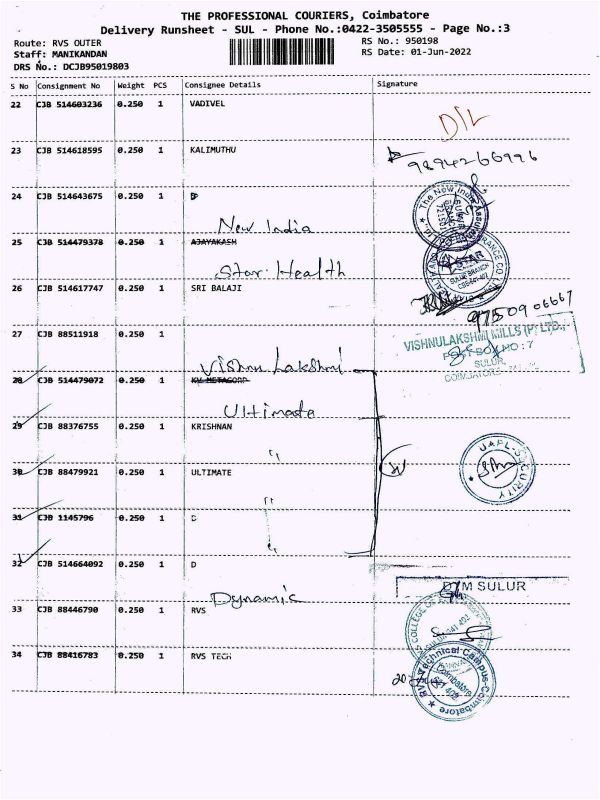 THE PROFESSIONAL COURIERS, Coimbatore
Delivery Runsheet - SUL - Phone No.:0422-3505555 - Page No.:3
Route: RVS OUTER
Staff: MANIKANDAN
DRS No.: DCJB95019803
RS No.: 950198
RS Date: 01-Jun-2022
S No Consignment No Weight PCS Consignee Details Signature
22 CJB 514603236 0.250 1 VADIVEL
D/L
23 CJB 514618595 0.250 1 KALIMUTHU
9894266996
24 CJB 514643675 0.250 1 D
New India
25 CJB 514479378 0.250 1 AJAYAKASH
Star Health
STAR
26 CJB 514617747 0.250 1 SRI BALAJI
9750906667
27 CJB 88511918 0.250 1
VISHNULAKSHMI MILLS (P) LTD.,
SULUR
Vishnu Lakshmi
28 CJB 514479072 0.250 1 KV METACORP
Ultimate
29 CJB 88376755 0.250 1 KRISHNAN
"
UAPL-SECURITY
30 CJB 88479921 0.250 1 ULTIMATE
"
31 CJB 1145796 0.250 1 D
"
32 CJB 514664092 0.250 1 D
SULUR
Dynamic
33 CJB 88446790 0.250 1 RVS
34 CJB 88416783 0.250 1 RVS TECH
RVS Technical Campus-Coimbatore